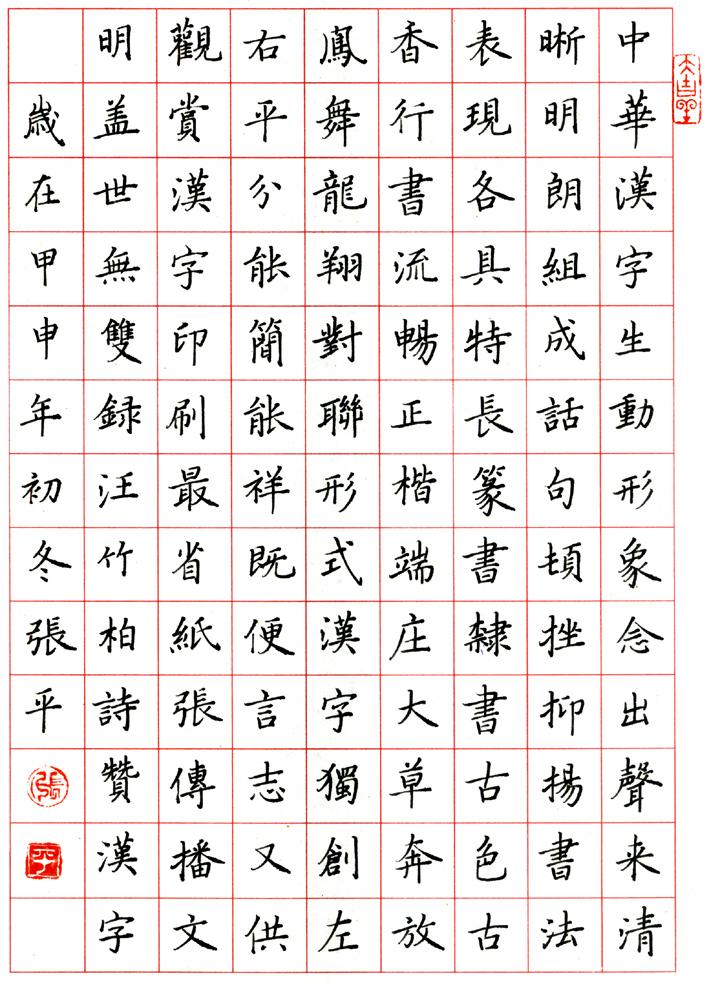 中華漢字生動形象念出聲来清
晰明朗組成話句頓挫抑揚書法
表現各具特長篆書隸書古色古
香行書流暢正楷端庄大草奔放
鳳舞龍翔對聯形式漢字獨創左
右平分能簡能祥既便言志又供
觀賞漢字印刷最省紙張傳播文
明盖世無雙録汪竹柏詩贊漢字
歲在甲申年初冬張平
張
平